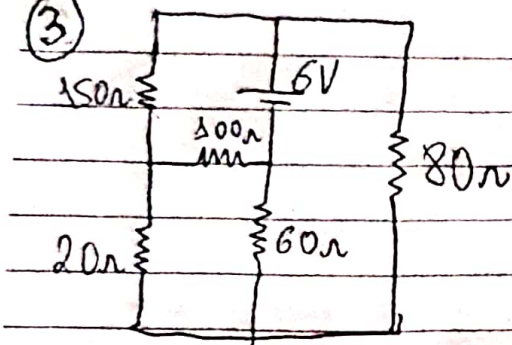 3
150Ω
6V
100Ω
80Ω
20Ω
60Ω